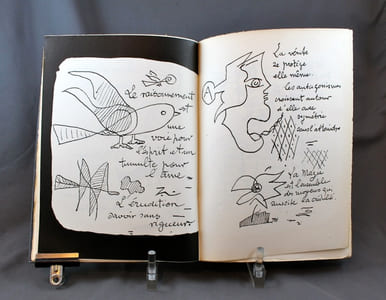 Le raisonnement
est
une
voie pour
l'esprit et un
tumulte pour
l'âme
L'érudition
savoir sans
rigueur
La vérité
se protège
elle même.
Les antagonismes
croissent autour
d'elle avec
symétrie
sans l'atteindre
A
La Magie
est l'ensemble
des moyens qui
suscite la crédulité